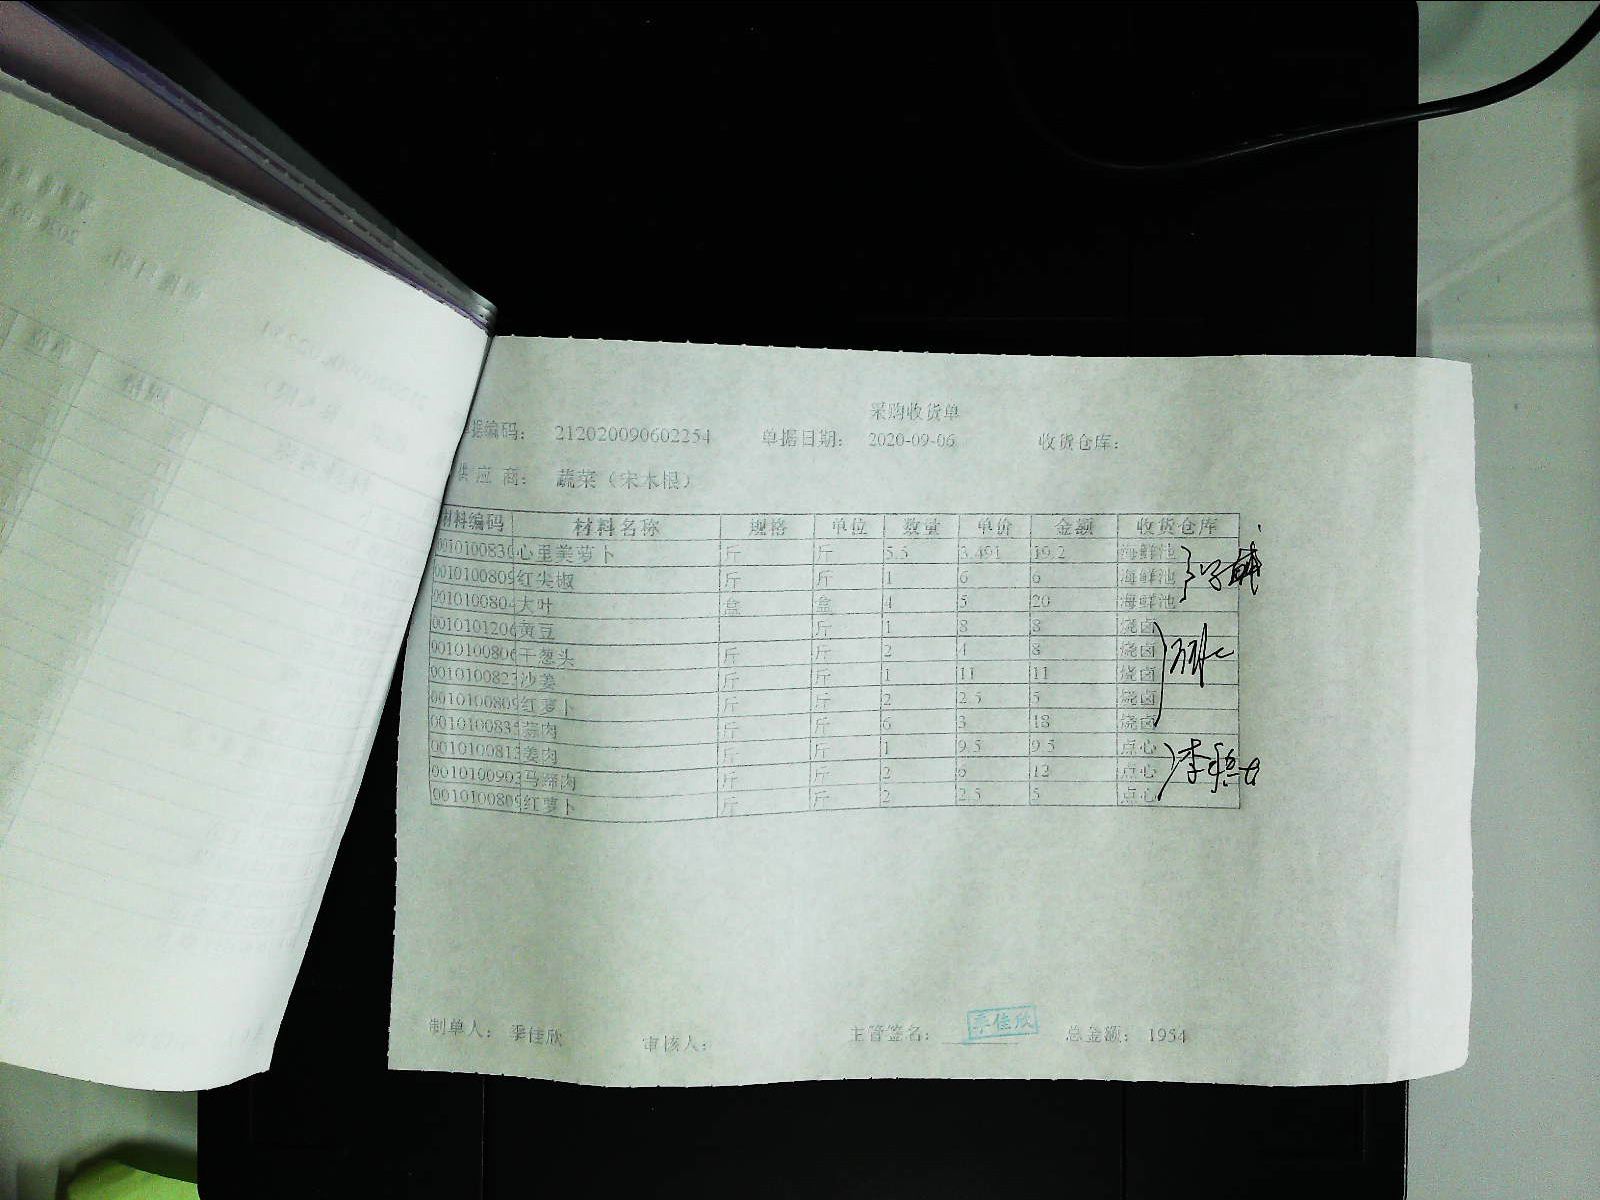 采购收货单
据编码： 212020090602254 单据日期： 2020-09-06 收货仓库：
供 应 商： 蔬菜（宋木根）
材料编码 材料名称 规格 单位 数量 单价 金额 收货仓库
00101008 心里美萝卜 斤 斤 5.5 3.491 19.2 海鲜池
0010100809 红尖椒 斤 斤 1 6 6 海鲜池
001010080 大叶 盒 盒 4 5 20 海鲜池
0010101206 黄豆 斤 1 8 8 烧卤
0010100806 干葱头 斤 斤 2 4 8 烧卤
001010082 沙姜 斤 斤 1 11 11 烧卤
0010100809 红萝卜 斤 斤 2 2.5 5 烧卤
001010083 蒜肉 斤 斤 6 3 18 烧卤
001010081 姜肉 斤 斤 1 9.5 9.5 点心
001010090 马蹄肉 斤 斤 2 6 12 点心
0010100809 红萝卜 斤 斤 2 2.5 5 点心
制单人： 季佳欣 审核人： 主管签名： 季佳欣 总金额： 1954